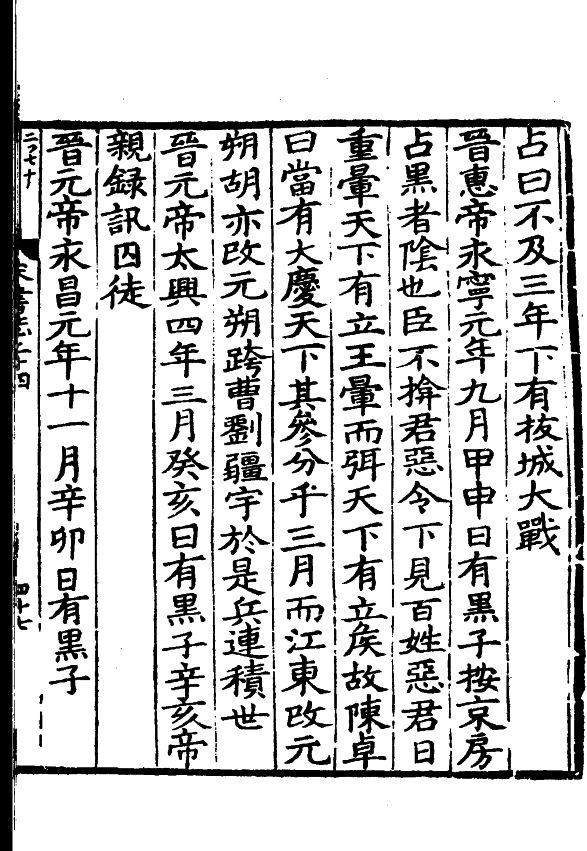 占曰不及三年下有拔城大戰
晉惠帝永寧元年九月甲申日有黑子按京房
占黑者陰也臣不揜君惡令下見百姓惡君日
重暈天下有立王暈而弭天下有立侯故陳卓
曰當有大慶天下其參分乎三月而江東改元
朔胡亦改元朔跨曹劉疆宇於是兵連積世
晉元帝太興四年三月癸亥日有黑子辛亥帝
親錄訊囚徒
晉元帝永昌元年十一月辛卯日有黑子
四十七